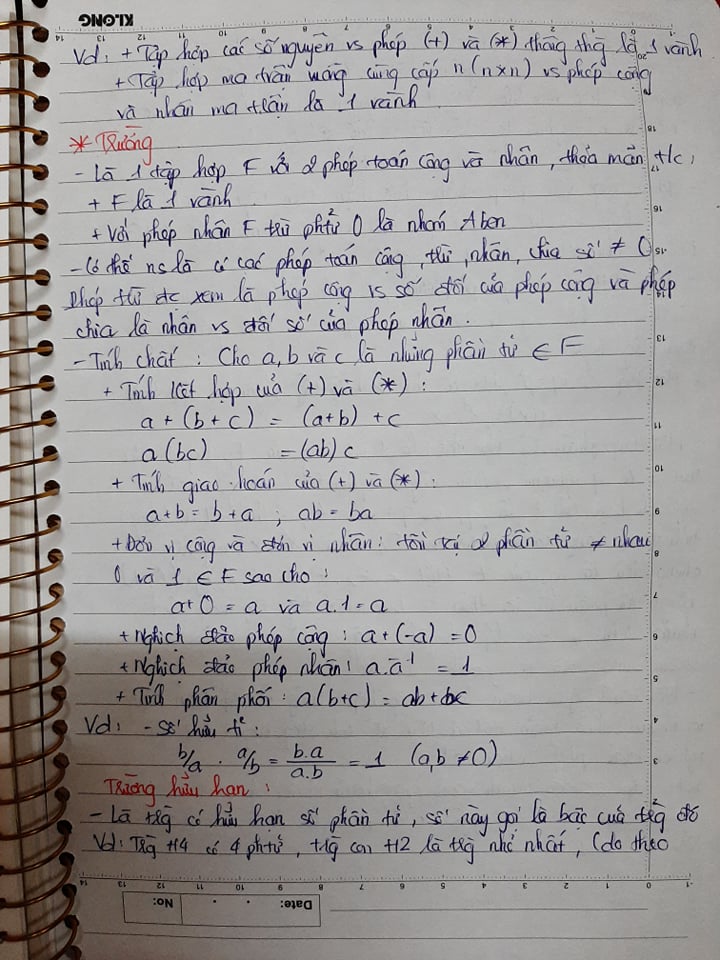 KLONG
Vd: + Tập hợp các số nguyên vs phép (+) và (*) thông thg là 1 vành
+ Tập hợp ma trận vuông cùng cấp n (n×n) vs phép cộng
và nhân ma trận là 1 vành
* Trường
- Là 1 tập hợp F với 2 phép toán cộng và nhân, thỏa mãn t/c:
+ F là 1 vành
+ Với phép nhân F trừ phtử 0 là nhóm Aben
- Có thể ns là có các phép toán cộng, trừ, nhân, chia số ≠ 0
phép trừ đc xem là phép cộng vs số đối của phép cộng và phép
chia là nhân vs đối số của phép nhân.
- Tính chất: Cho a, b và c là những phần tử ∈ F
+ Tính kết hợp của (+) và (*):
a + (b + c) = (a+b) + c
a (bc) = (ab) c
+ Tính giao hoán của (+) và (*):
a+b = b+a ; ab = ba
+ Đơn vị cộng và đơn vị nhân: tồn tại 2 phần tử ≠ nhau
0 và 1 ∈ F sao cho:
a+0 = a và a.1 = a
+ Nghịch đảo phép cộng: a + (-a) = 0
+ Nghịch đảo phép nhân: a.a⁻¹ = 1
+ Tính phân phối: a(b+c) = ab +
Vd: - Số hữu tỉ:
b/a . a/b = b.a / a.b = 1 (a,b ≠ 0)
Trường hữu hạn:
- Là trg có hữu hạn số phần tử, số này gọi là bậc của trg đó
Vd: Trg H4 có 4 phtử, trg con H2 là trg nhỏ nhất, (do theo
No:
Date: